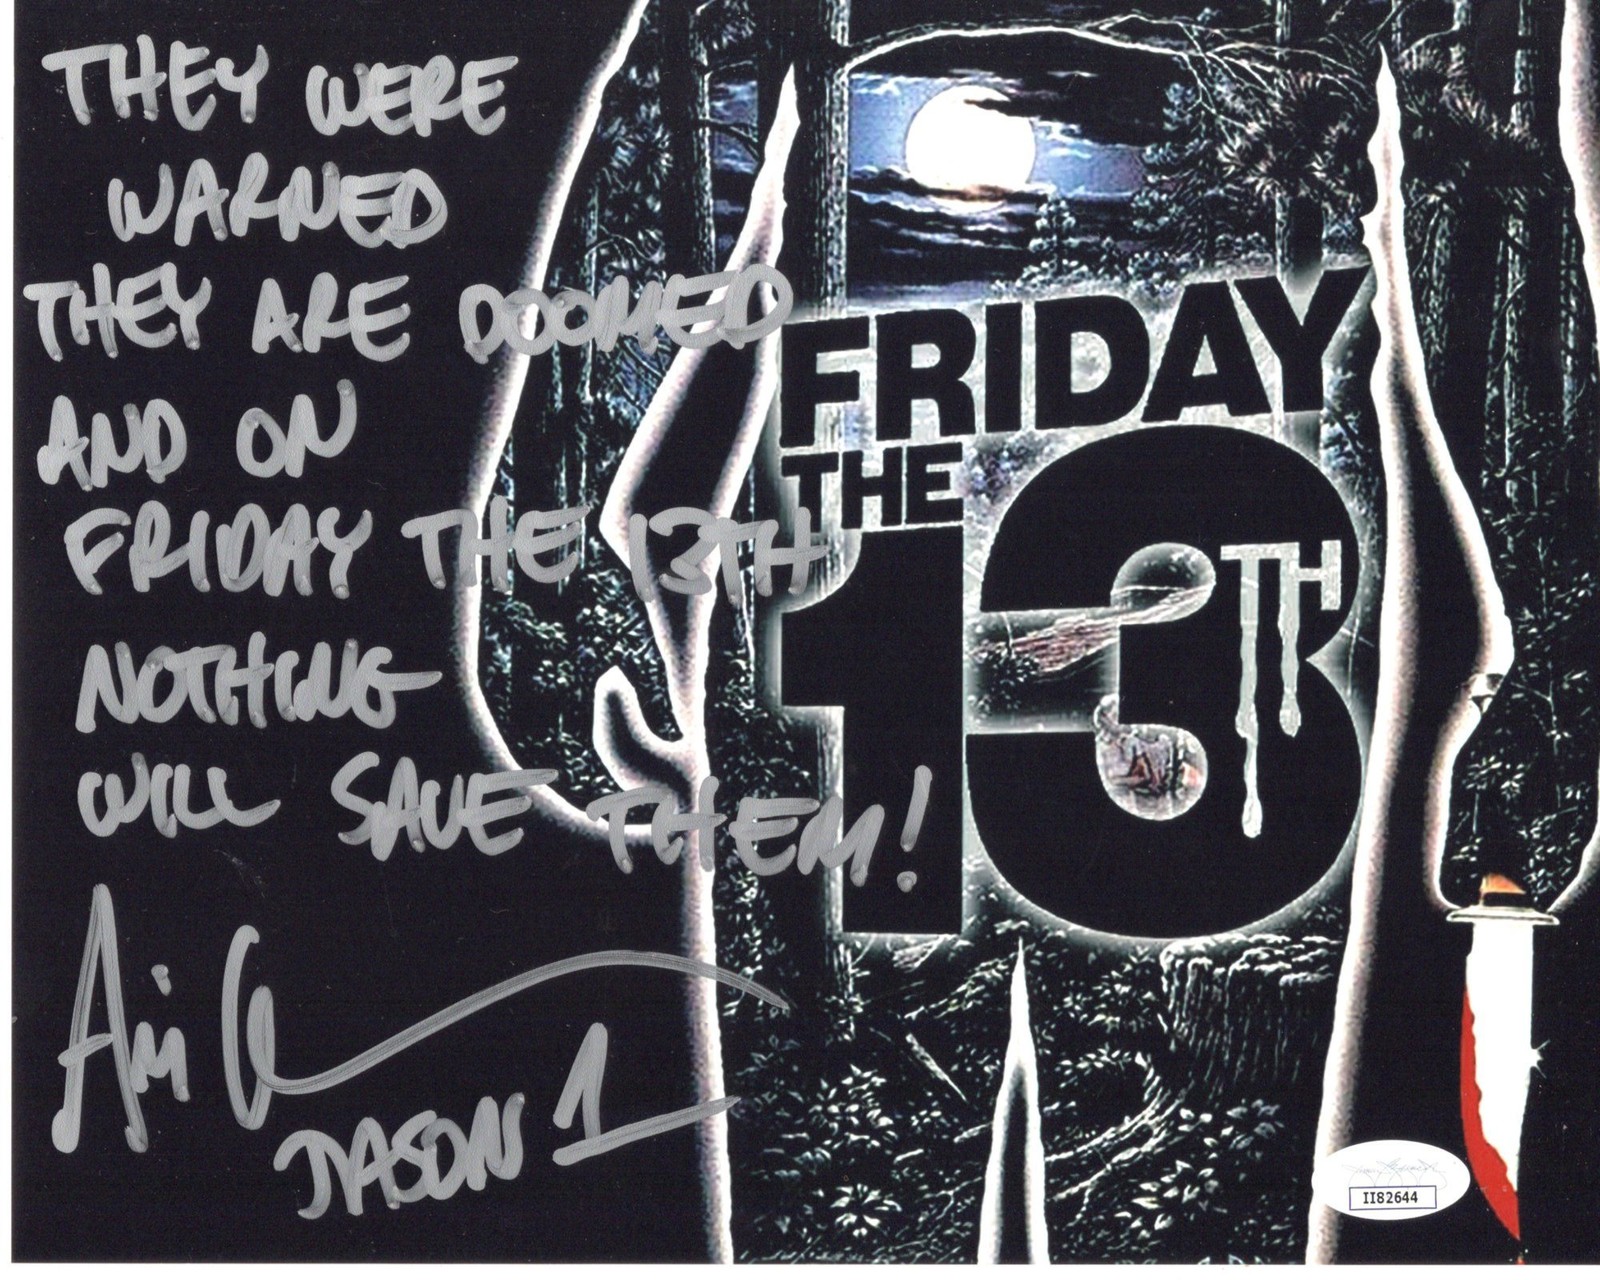 THEY WERE
WARNED
THEY ARE DOOMED
AND ON
FRIDAY THE 13TH
NOTHING
WILL SAVE THEM!
Ari
JASON 1
FRIDAY
THE
13TH
II82644